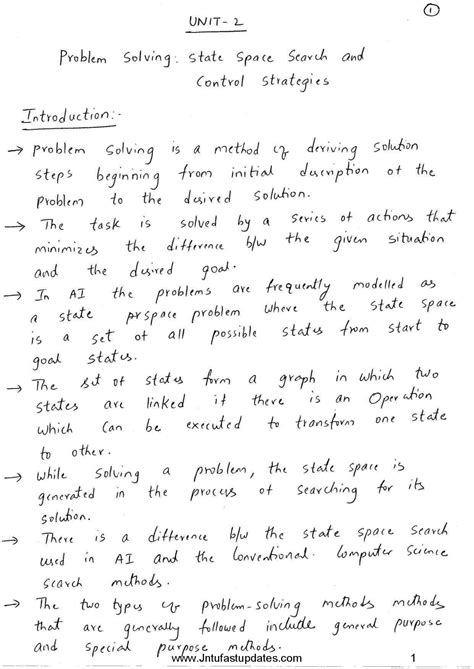 1
UNIT-2
Problem Solving: State Space Search and
Control Strategies
Introduction:-
→ Problem Solving is a method of deriving Solution
steps beginning from initial description of the
problem to the desired solution.
→ The task is solved by a series of actions that
minimizes the difference b/w the given situation
and the desired goal.
→ In AI the problems are frequently modelled as
a state prspace problem where the state space
is a set of all possible states from start to
goal states.
→ The set of states form a graph in which two
states are linked if there is an Operation
which can be executed to transform one state
to other.
→ while solving a problem, the state space is
generated in the process of searching for its
solution.
→ There is a difference b/w the state space search
used in AI and the Conventional. Computer Science
search methods.
→ The two types of problem-solving methods methods
that are generally followed include general purpose
and special purpose methods.
www.Jntufastupdates.com 1